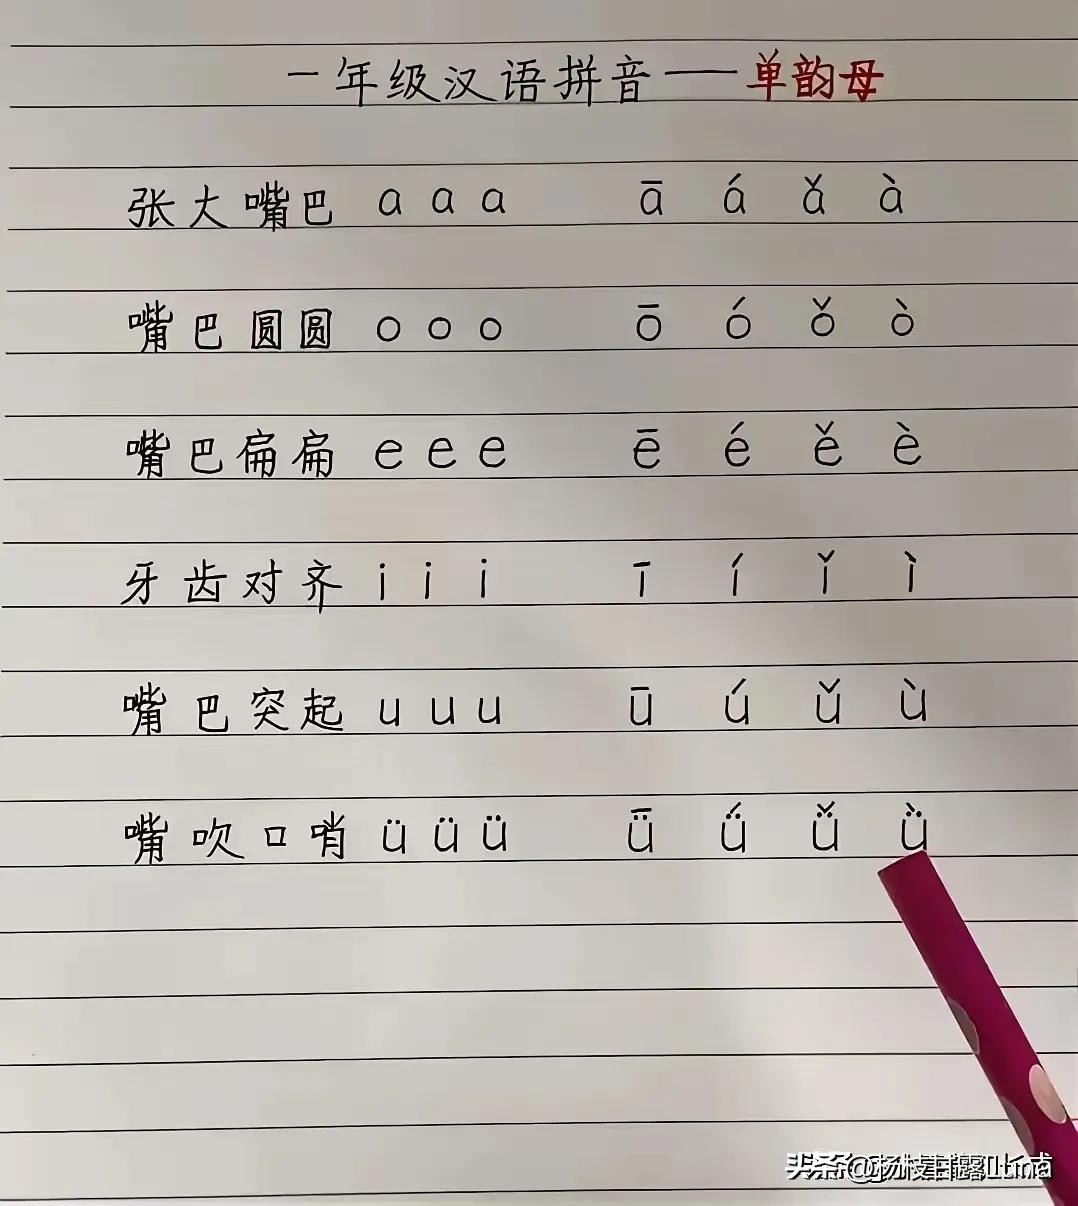 一年级汉语拼音——单韵母
张大嘴巴 a a a ā á ǎ à
嘴巴圆圆 o o o ō ó ǒ ò
嘴巴扁扁 e e e ē é ě è
牙齿对齐 i i i ī í ǐ ì
嘴巴突起 u u u ū ú ǔ ù
嘴吹口哨 ü ü ü ǖ ǘ ǚ ǜ
头条@杨枝